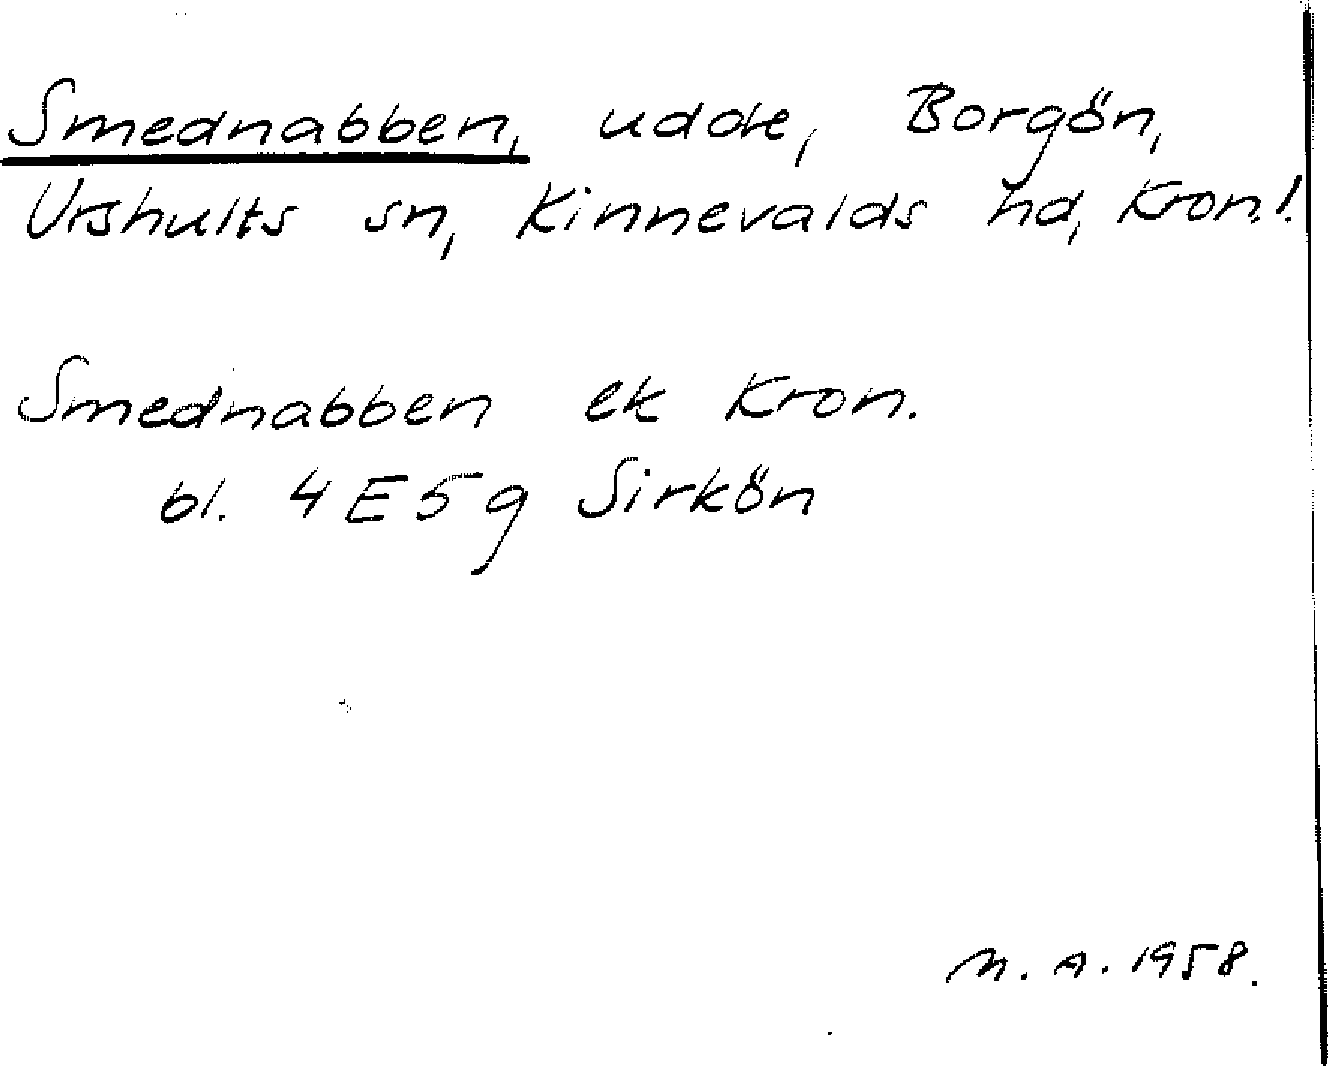 Smednabben, udde, Borgön,
Urshults sn, Kinnevalds hd, Kron.l.
Smednabben ek Kron.
bl. 4E5g Sirkön
M. A. 1958.